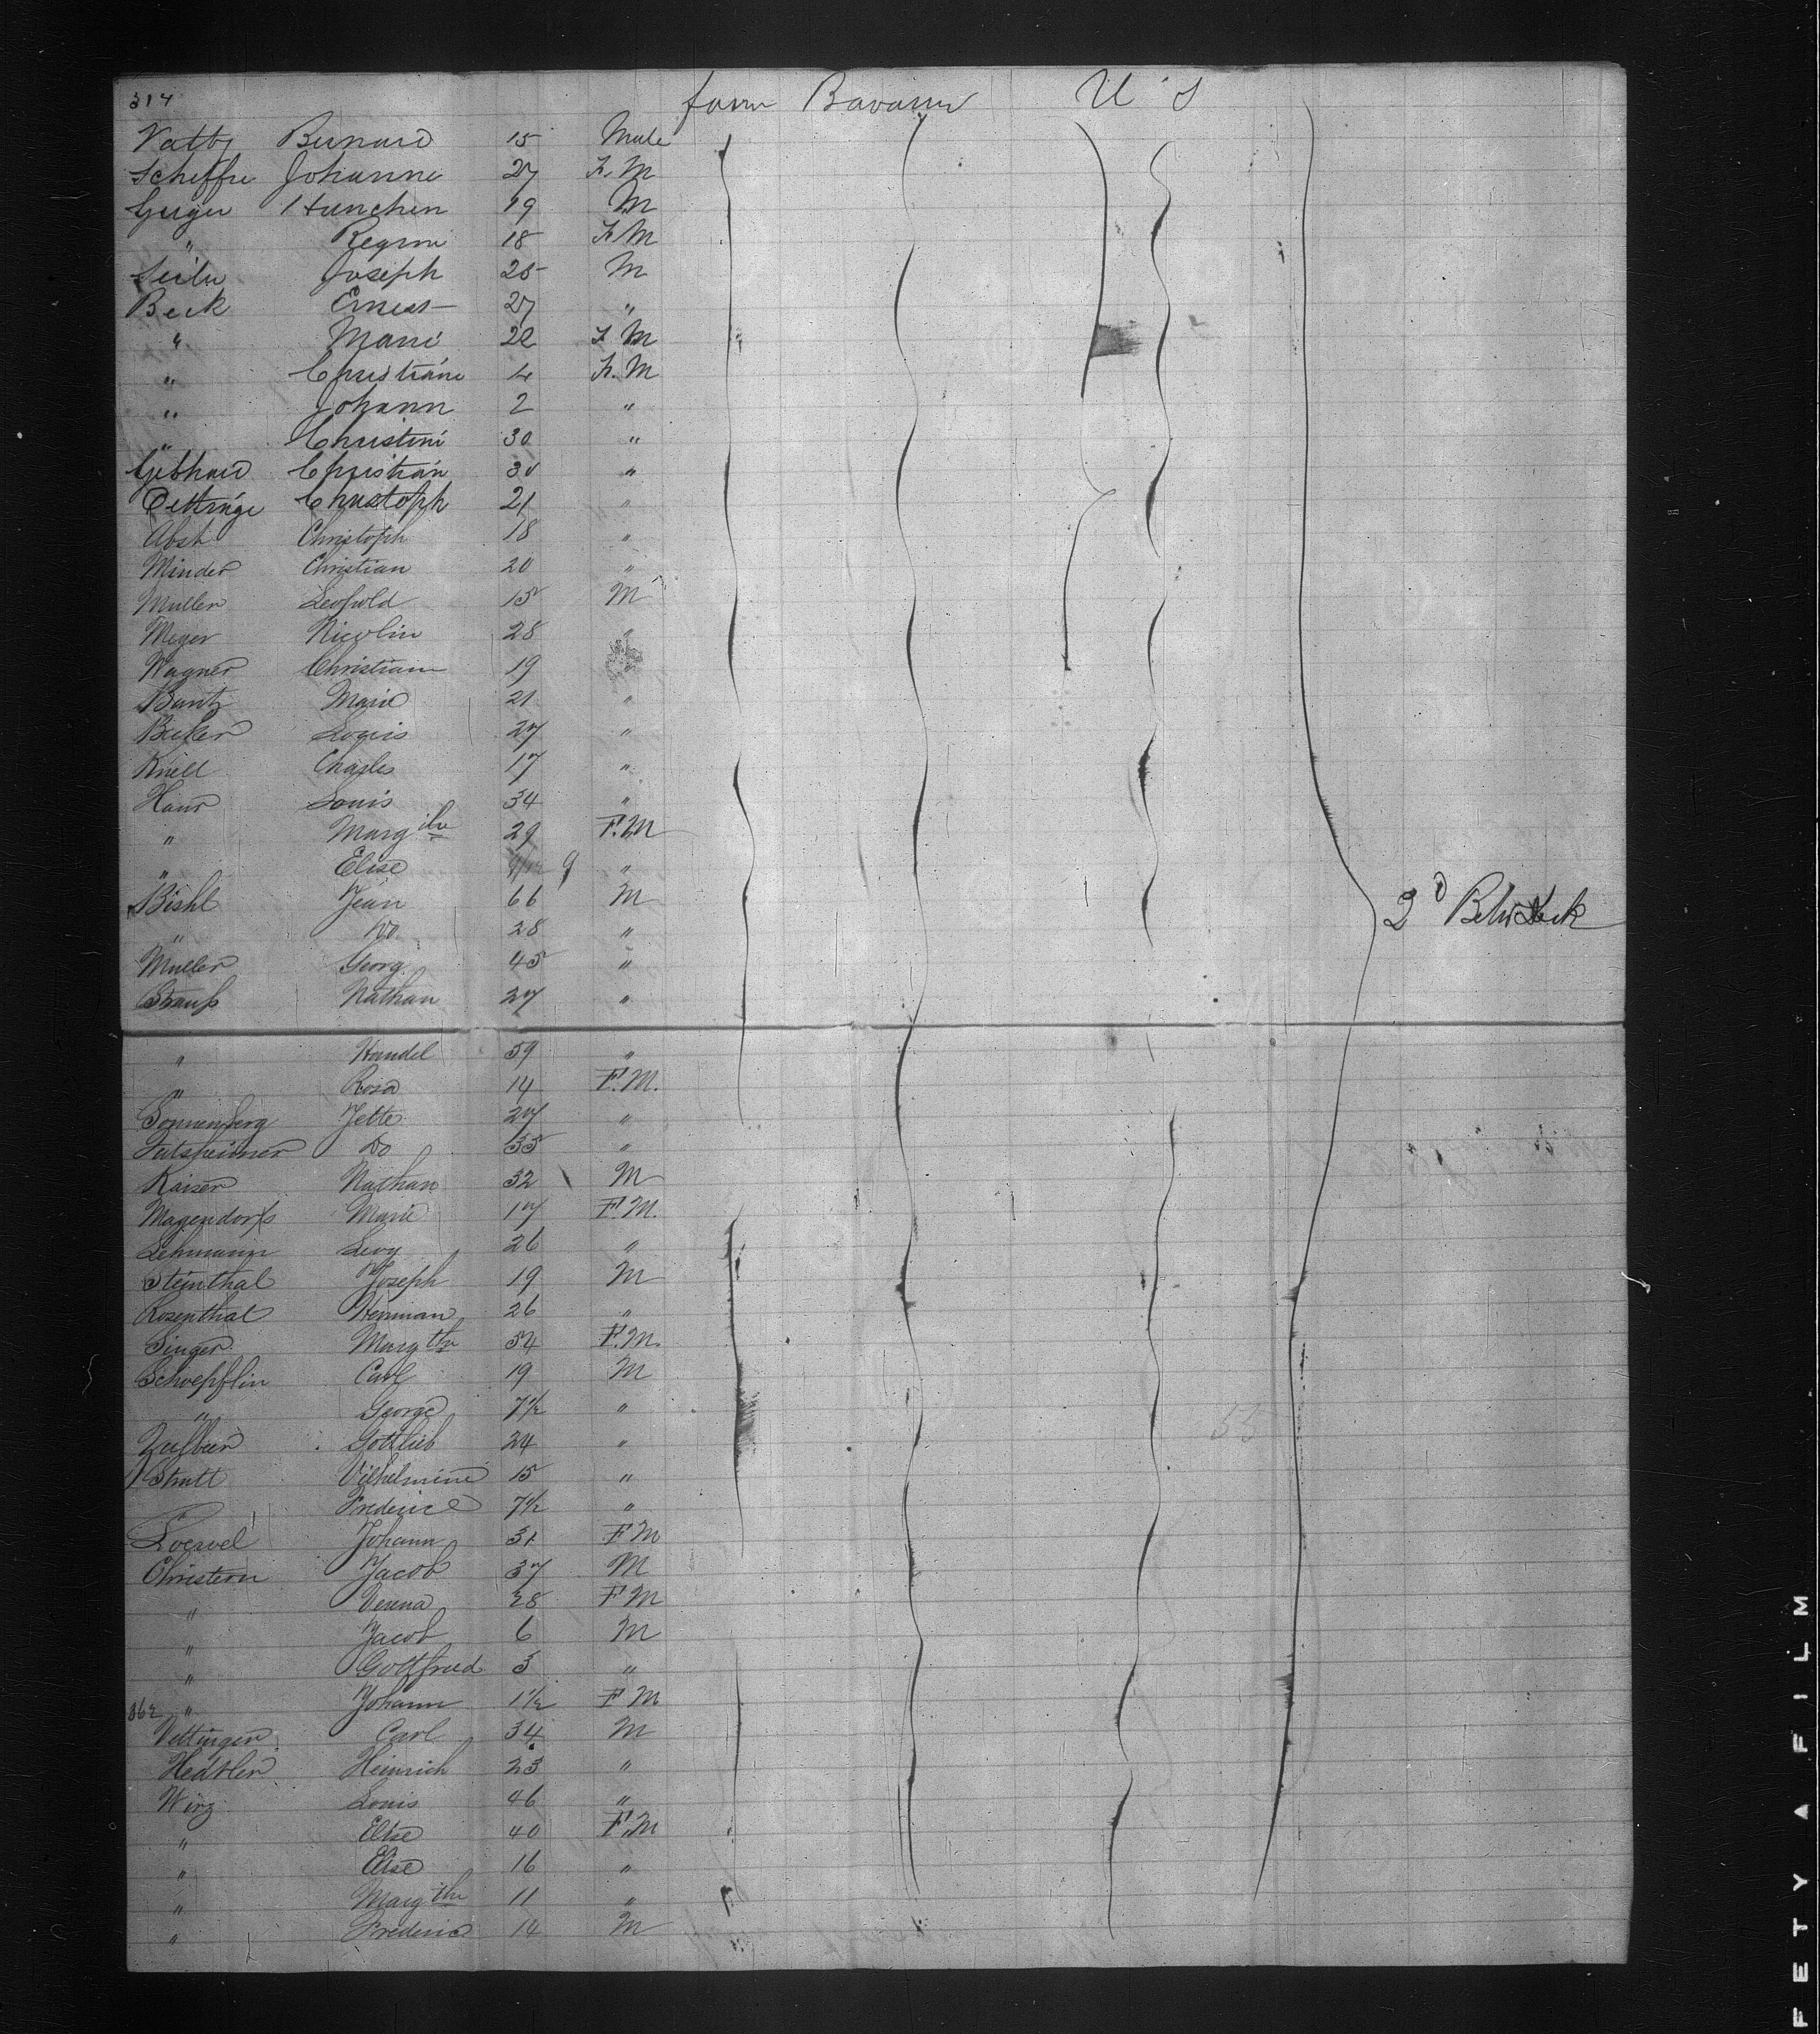 314 farm Bavaria U S
Vatty Bernard 15 Male
Scheffer Johanna 27 F. M
Geiger Hanchen 19 M
" Regine 18 F M
Seiler Joseph 25 M
Beck Ernest 27 "
" Marie 22 F M
" Christiane 4 F. M
" Johann 2 "
" Christine 30 "
Gebhard Christian 30 "
Oettinge Christoph 21 "
Abst Christoph 18 "
Minder Christian 20 "
Muller Leopold 15 M
Meyer Nicolin 28 "
Wagner Christiane 19 "
Buntz Marie 21 "
Becker Louis 27 "
Knell Charles 17 "
Haur Louis 34 "
" Margthe 29 F. M
" Elise 9/12 9 "
Bishl Jean 66 M
" Do 28 "
Muller Georg 45 "
Strauss Nathan 27 "
2d Betw Deck
" Handel 59 "
" Rosa 14 F. M.
Sonnenberg Jette 27 "
Do 35 "
Kaiser Nathan 32 M
Magendorfs Marie 17 F. M.
Lehmann Levy 26 "
Steinthal Joseph 19 M
Rosenthal Herman 26 "
Singer Margthe 54 F. M.
Schoepflin Carl 19 M
" George 7 1/2 "
Gottlieb 24 "
Strutt Vilhelmine 15 "
Frederic 7 1/2 "
Loesvel Johann 31 F M
Christern Jacob 37 M
" Verena 28 F M
" Jacob 6 M
" Gottfried 3 "
362 " Johann 1 1/2 F M
Vettinger Carl 34 M
Hedtler Heinrich 23 "
Wirz Louis 46 "
" Elise 40 F. M
" Elise 16 "
" Margthe 11 "
" Frederic 14 M
FETY ▲ FILM